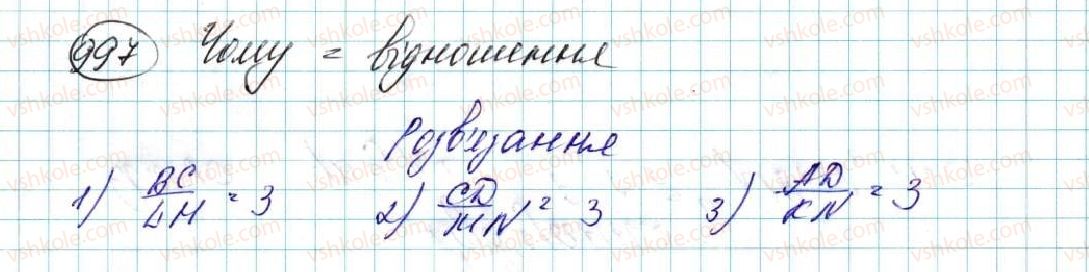 997 Чому = відношення
Розв'язання
1) BC/LM = 3 2) CD/MN = 3 3) AD/KN = 3